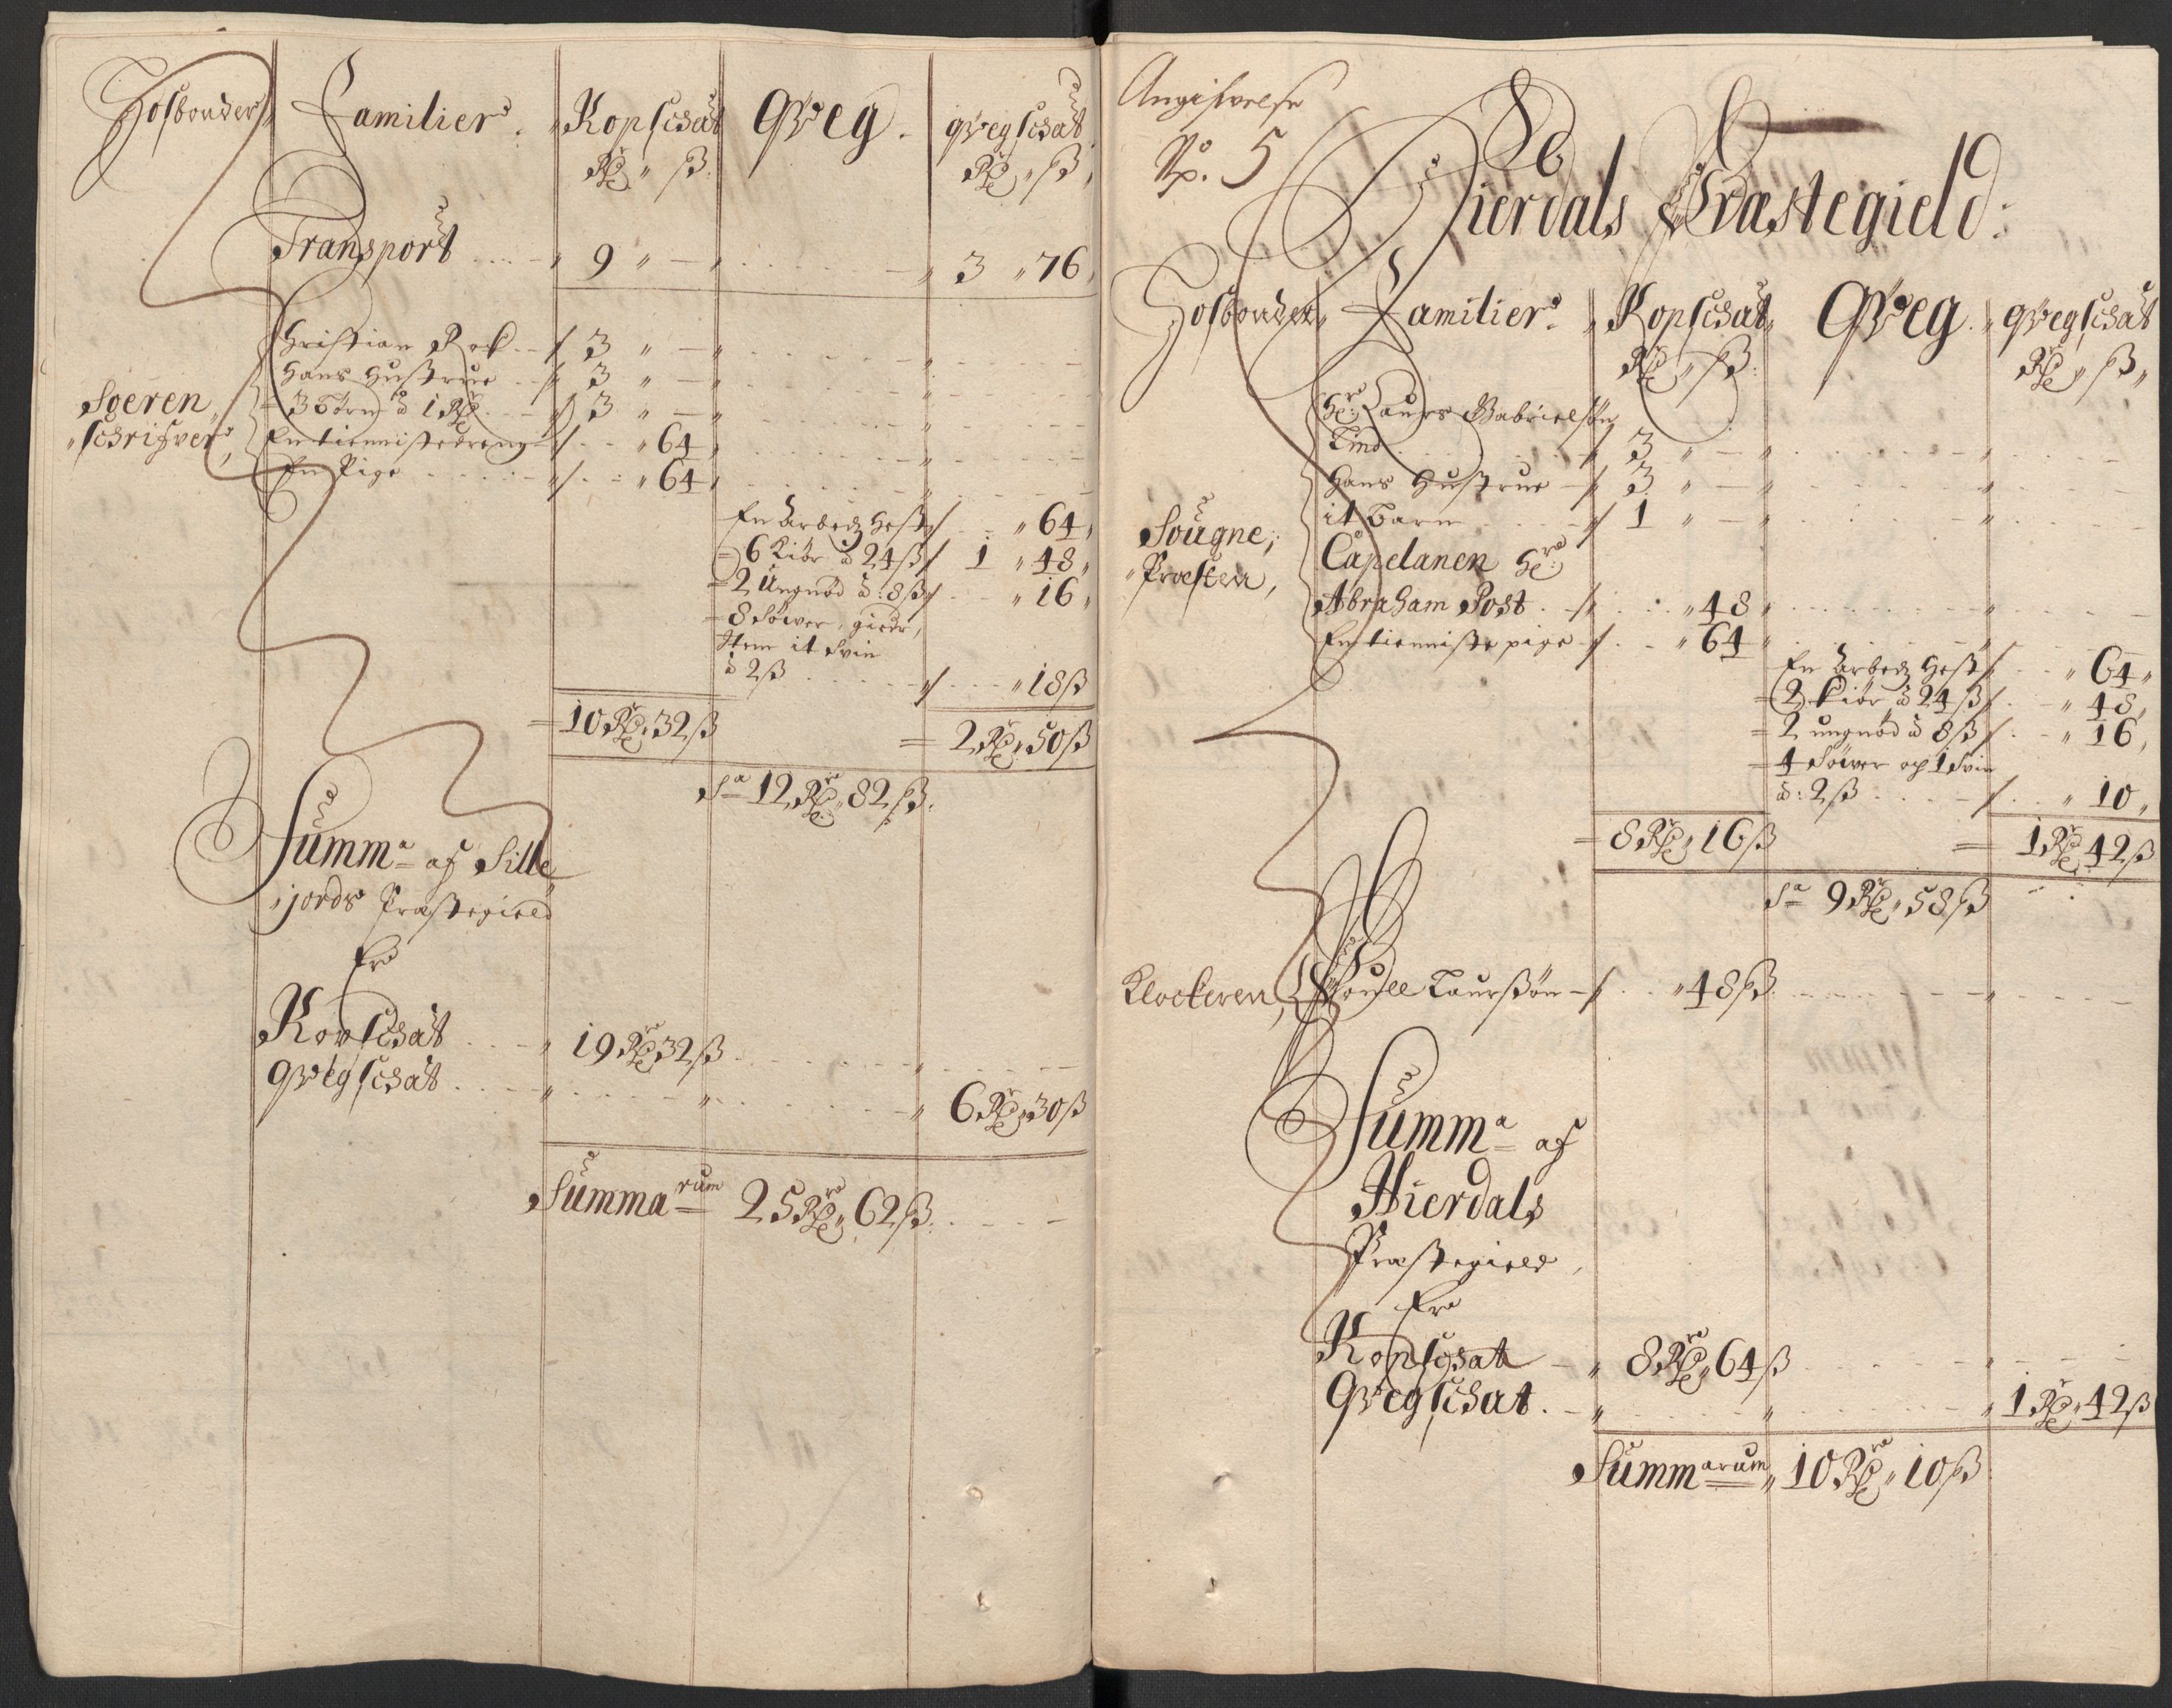 Hosbonder Familier Kopschat Qveg. qvegschat
Rdr ß. Rdr ß
Transport 9 " — 3 " 76
Christian 3 " —
Hans Hustrue 3 " —
Soeren 3 Börn â 1 Rdr 3 " —
schrifver En tienniste dreng " 64
En Pige " 64
En Arbeds Hest " 64
6 Kiör â 24 ß 1 " 48
2 Ungnöd â: 8 ß " 16
8 Söwer, gieder,
Item it Svin
â 2 ß " 18 ß
10 Rdr 32 ß 2 Rdr 50 ß
Sa 12 Rdr 82 ß.
Summa af Sille
jords Præstegield
Er
Kopschat 19 Rdr 32 ß
Qvegschat 6 Rdr 30 ß
Summarum 25 Rdr 62 ß
Angifvelse
No. 5
Hierdals Præstegield:
Hosbonder Familier Kopschat Qveg qvegschat
Rdr ß. Rdr ß
Hr: Laurs Gabrielsön
Lind 3 " —
Hans Hustrue 3 " —
Sougne it Barn 1 " —
Præsten Capelanen Hr:
Abraham Post " 48
En tienniste pige " 64
En Arbeds Hest " 64
2 Kiör â 24 ß " 48
2 ungnöd â 8 ß " 16
4 Söwer og 1 Svin
â: 2 ß " 10
8 Rdr 16 ß 1 Rdr 42 ß
Sa 9 Rdr 58 ß
Klockeren Poull Laurssön " 48 ß
Summa af
Hierdals
Præstegield
Er
Kopschat 8 Rdr 64 ß
Qvegschat. 1 Rdr 42 ß
Summarum 10 Rdr 10 ß